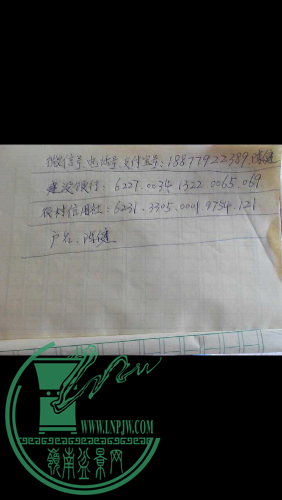 微信号、电话号、支付宝号：18877922389 陈健
建设银行：6227.0034.1322.0065.069
农村信用社：6231.3305.0001.9754.121
户名：陈健
WWW.LNPJW.COM
嶺南盆景网